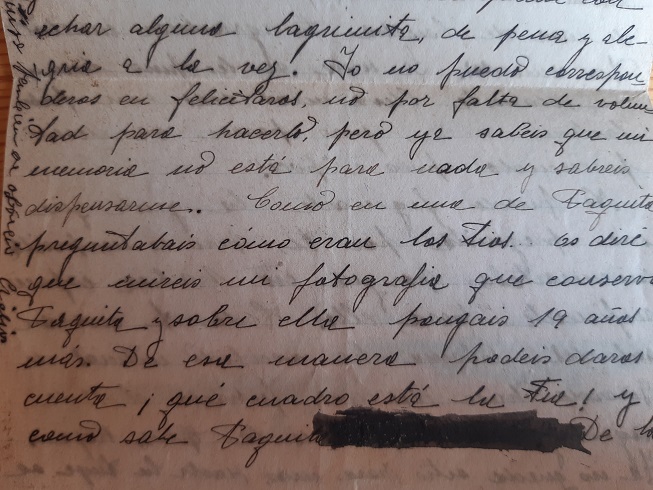 echar alguna lagrimita, de pena y ale-
gria a la vez. Yo no puedo correspon-
deros en felicitaros, no por falta de volun-
tad para hacerlo, pero ya sabeis que mi
memoria no está para nada y sabreis
dispensarme. Como en una de Paquita
preguntabais cómo eran los tios. Os diré
que mireis mi fotografia que conserva
Paquita y sobre ella pongais 19 años
más. De esa manera podeis daros
cuenta ¡ qué cuadro está la tia! y
como sabe Paquita De la